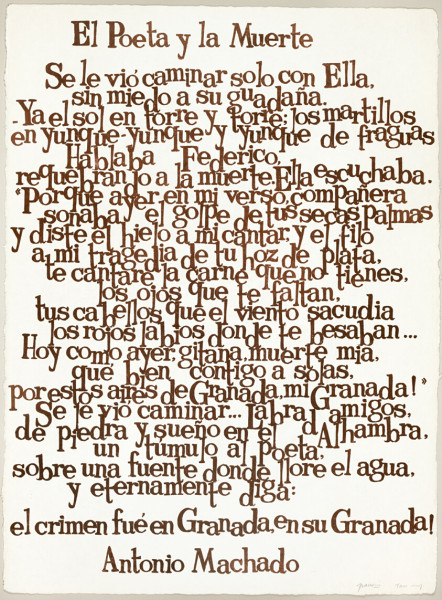 El Poeta y la Muerte
Se le vió caminar solo con Ella,
sin miedo a su guadaña.
-Ya el sol en torre y torre; los martillos
en yunque-yunque y yunque de fraguas
Hablaba Federico,
requebrando a la muerte. Ella escuchaba.
"Porque ayer en mi verso, compañera
sonaba, y el golpe de tus secas palmas
y diste el hielo a mi cantar, y el filo
a mi tragedia de tu hoz de plata,
te cantaré la carne que no tienes,
los ojos que te faltan,
tus cabellos que el viento sacudia
los rojos labios donde te besaban...
Hoy como ayer, gitana, muerte mia,
que bien contigo a solas,
por estos aires de Granada, mi Granada!"
Se le vió caminar... Labrad amigos,
de piedra y sueño en el Alhambra,
un túmulo al poeta,
sobre una fuente donde llore el agua,
y eternamente diga:
el crimen fué en Granada, en su Granada!
Antonio Machado